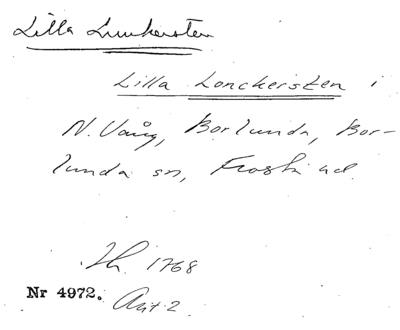 Lilla Lunkersten
Lilla Lonckersten i
N. Vång, Borlunda, Bor-
lunda sn, Frosta hd.
Lh. 1768
Nr 4972. Akt 2